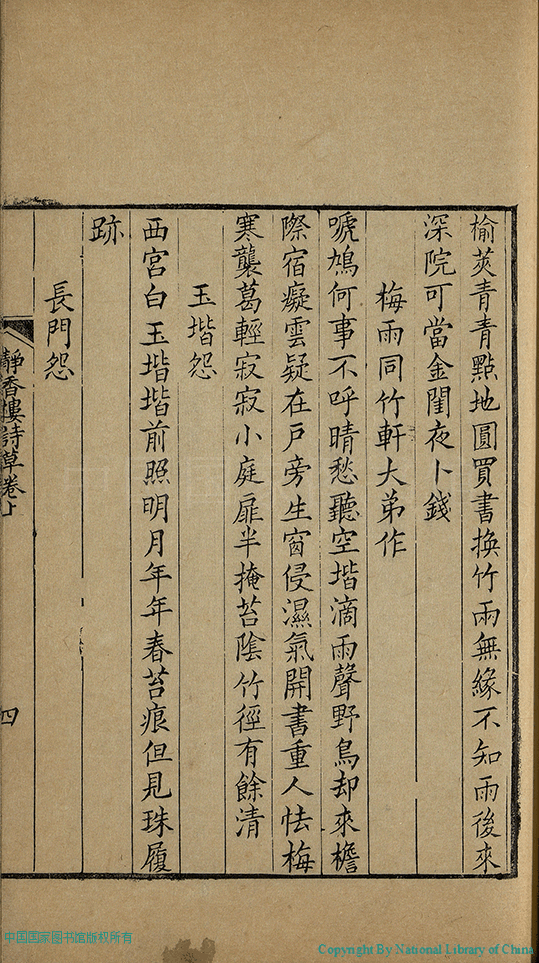 榆莢青青點地圓買書換竹兩無緣不知雨後來
深院可當金閨夜卜錢
梅雨同竹軒大弟作
唬鳩何事不呼晴愁聽空堦滴雨聲野鳥却來檐
際宿癡雲疑在戶旁生窗侵濕氣開書重人怯梅
寒襲葛輕寂寂小庭扉半掩苔陰竹徑有餘清
玉堦怨
西宮白玉堦堦前照明月年年春苔痕但見珠履
跡
長門怨
靜香樓詩草卷上
四
中国国家图书馆版权所有
Copyright By National Library of China